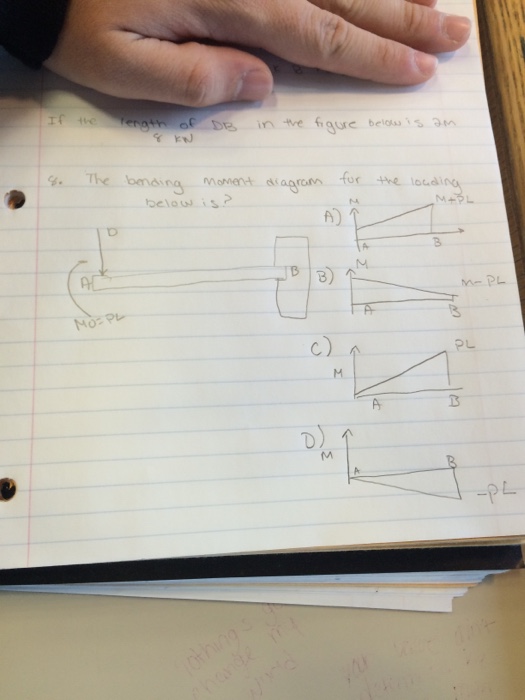 If the length of DB in the figure below is 2m
8 KN
8. The bending moment diagram for the loading
below is?
A) M M+PL
A B
P
A B
M0=PL
B) M M-PL
A B
C) PL
M
A B
D)
M A B
-PL